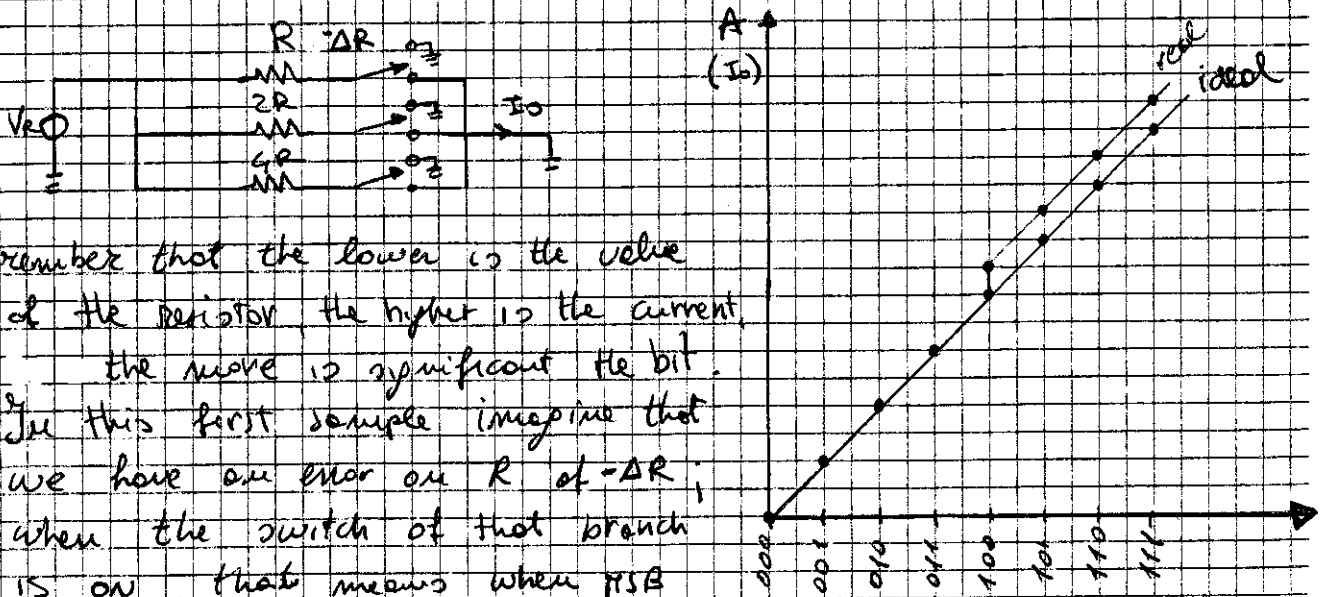 R -ΔR
2R
4R
VR
I0
remember that the lower is the value
of the resistor, the higher is the current,
the more is significant the bit.
In this first sample imagine that
we have an error on R of -ΔR ;
when the switch of that branch
is on that means when MSB
A
(I0)
real
ideal
000
001
010
011
100
101
110
111